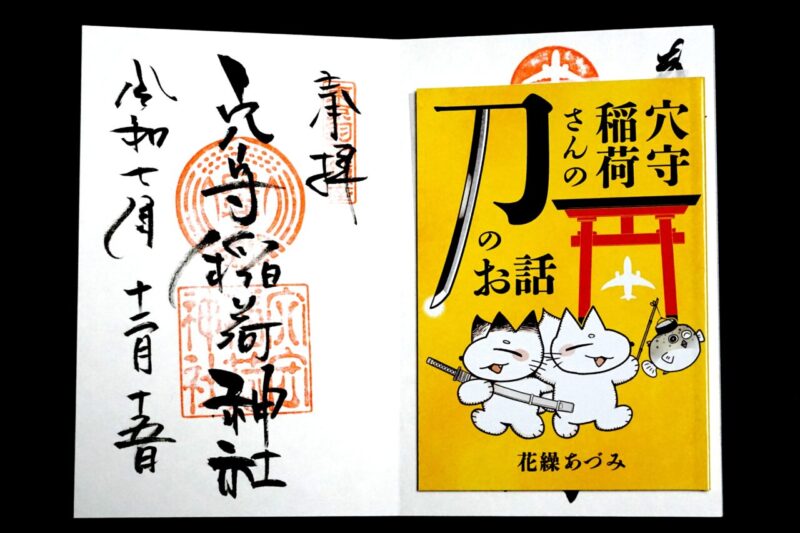 奉拝
穴守稲荷神社
令和七年 十二月 十五日
穴守
稲荷
神社
穴守
稲荷
さんの
刀
のお話
花繰あづみ